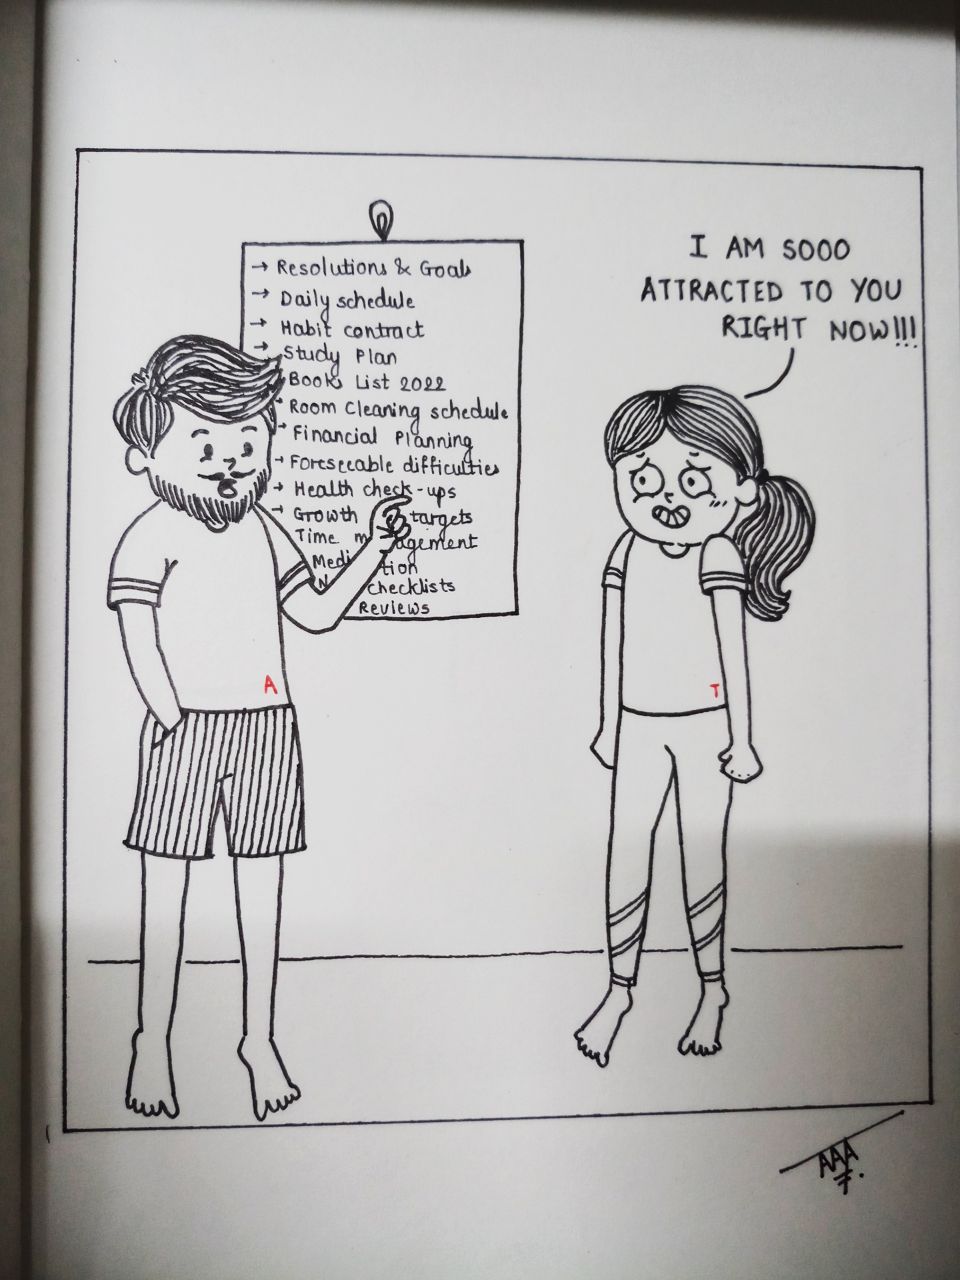 → Resolutions & Goals
→ Daily schedule
→ Habit contract
→ Study Plan
Books List 2022
→ Room Cleaning schedule
→ Financial Planning
→ Foreseeable difficulties
→ Health check-ups
→ Growth targets
Time
checklists
Reviews
I AM SOOO
ATTRACTED TO YOU
RIGHT NOW!!!
A
T
AAA